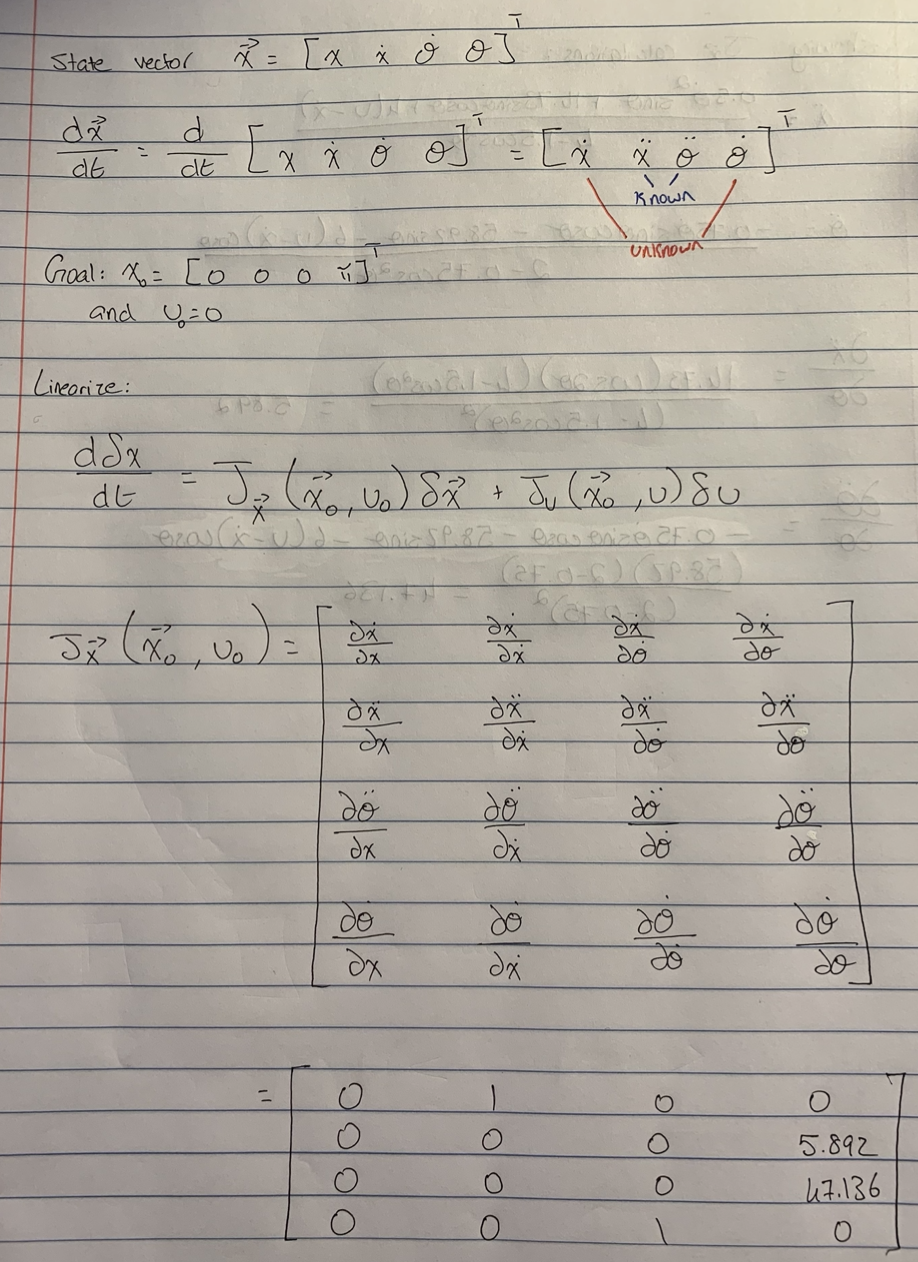 State vector x⃗ = [x ẋ θ̇ θ]ᵀ
dx⃗/dt = d/dt [x ẋ θ̇ θ]ᵀ = [ẋ ẍ θ̈ θ̇]ᵀ
Known
Unknown
Goal: x₀ = [0 0 0 π]ᵀ
and U₀=0
Linearize:
dδx/dt = J_x⃗ (x⃗₀, U₀) δx⃗ + J_U (x⃗₀, U) δU
J_x⃗ (x⃗₀, U₀) = [ ∂ẋ/∂x ∂ẋ/∂ẋ ∂ẋ/∂θ̇ ∂ẋ/∂θ
∂ẍ/∂x ∂ẍ/∂ẋ ∂ẍ/∂θ̇ ∂ẍ/∂θ
∂θ̈/∂x ∂θ̈/∂ẋ ∂θ̈/∂θ̇ ∂θ̈/∂θ
∂θ̇/∂x ∂θ̇/∂ẋ ∂θ̇/∂θ̇ ∂θ̇/∂θ ]
= [ 0 1 0 0
0 0 0 5.892
0 0 0 47.136
0 0 1 0 ]